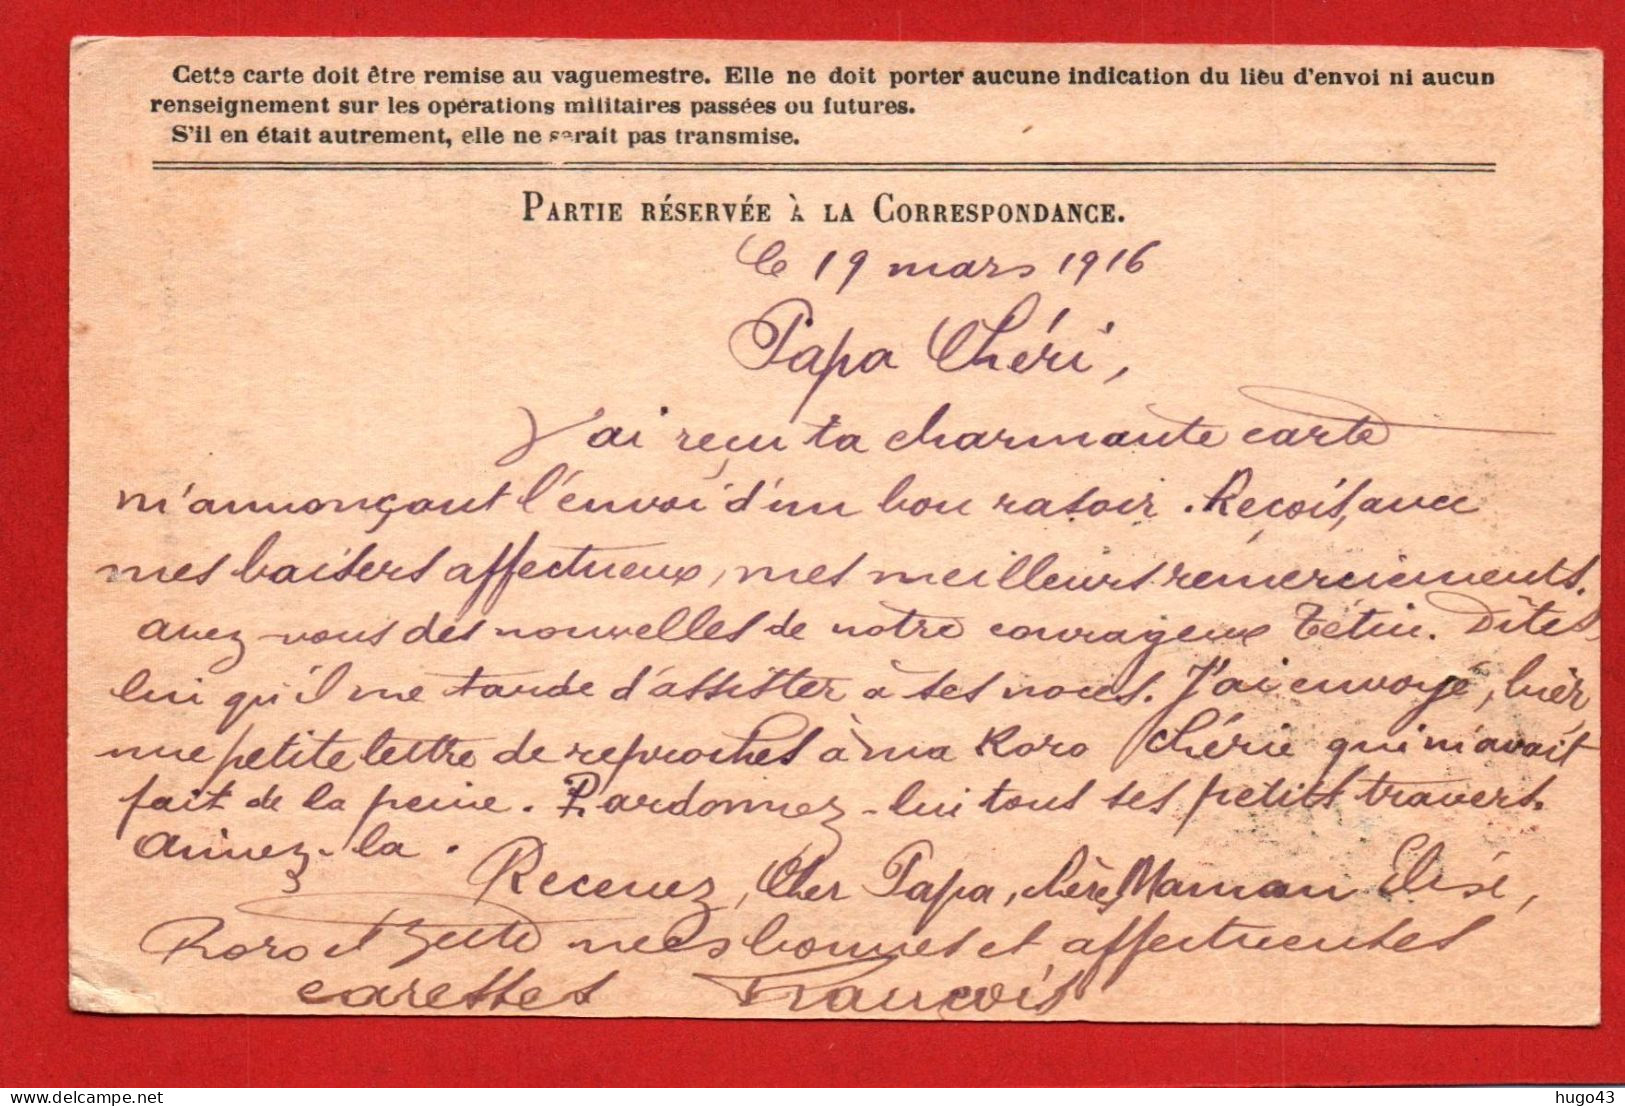 Cette carte doit être remise au vaguemestre. Elle ne doit porter aucune indication du lieu d'envoi ni aucun
renseignement sur les opérations militaires passées ou futures.
S'il en était autrement, elle ne serait pas transmise.
PARTIE RÉSERVÉE À LA CORRESPONDANCE.
le 19 mars 1916
Papa Chéri,
J'ai reçu ta charmante carte
m'annonçant l'envoi d'un bon rasoir. Reçois, avec
mes baisers affectueux, mes meilleurs remerciements.
avez-vous des nouvelles de notre courageux Tétin. Dîtes
lui qu'il me tarde d'assister à ses noces. J'ai envoyé, hièr,
une petite lettre de reproches à ma Roro chérie qui m'avait
fait de la peine. Pardonnez-lui tous ses petits travers.
Aimez-la.
Recevez, Cher Papa, chère Maman Elise,
Roro et mes bonnes et affectueuses
caresses François
hugo43